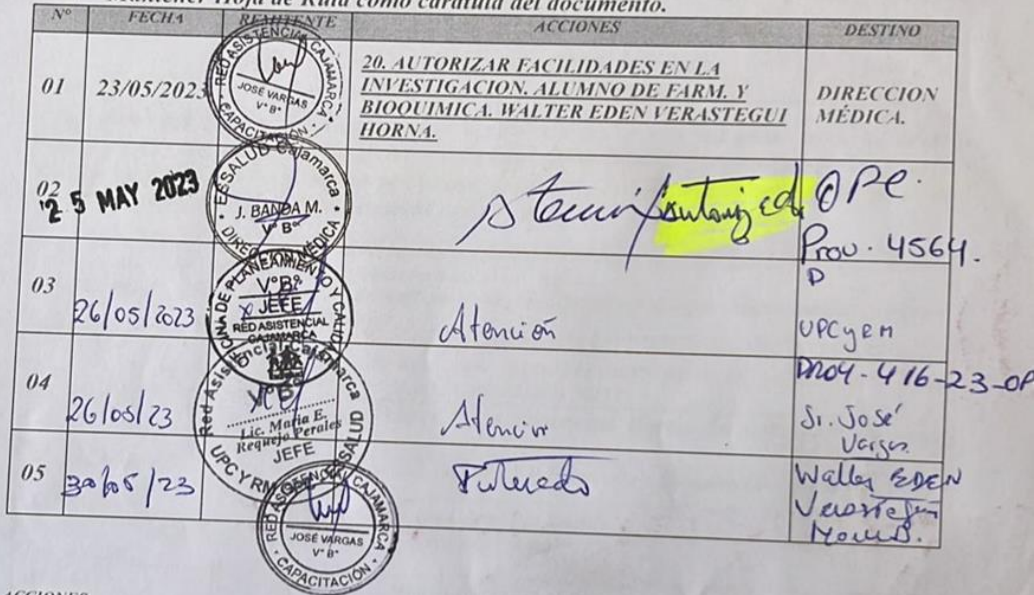 Mantener Hoja de Ruta como carátula del documento.
Nº FECHA REMITENTE ACCIONES DESTINO
01 23/05/2023
RED ASISTENCIAL CAJAMARCA
JOSÉ VARGAS
V° B°
CAPACITACIÓN
20. AUTORIZAR FACILIDADES EN LA
INVESTIGACION. ALUMNO DE FARM. Y
BIOQUIMICA. WALTER EDEN VERASTEGUI
HORNA.
DIRECCION
MÉDICA.
02
25 MAY 2023
ESSALUD Cajamarca
J. BANDA M.
V° B°
DIRECCIÓN MÉDICA
OPC
Prov. 4564.
03
26/05/2023
DE PLANEAMIENTO Y CALIDAD
V°B°
JEFE
RED ASISTENCIAL
CAJAMARCA
Atención
UPCyRM
04
26/05/23
Red Asistencial Cajamarca
V° B°
Lic. Maria E.
Requejo Perales
JEFE
UPC Y RM ESSALUD
Atención
416-23-OP
Sr. José
Vargas.
05 30/05/23
RED ASISTENCIAL CAJAMARCA
JOSÉ VARGAS
V° B°
CAPACITACIÓN
Walter EDEN
Verástegui
ACCIONES